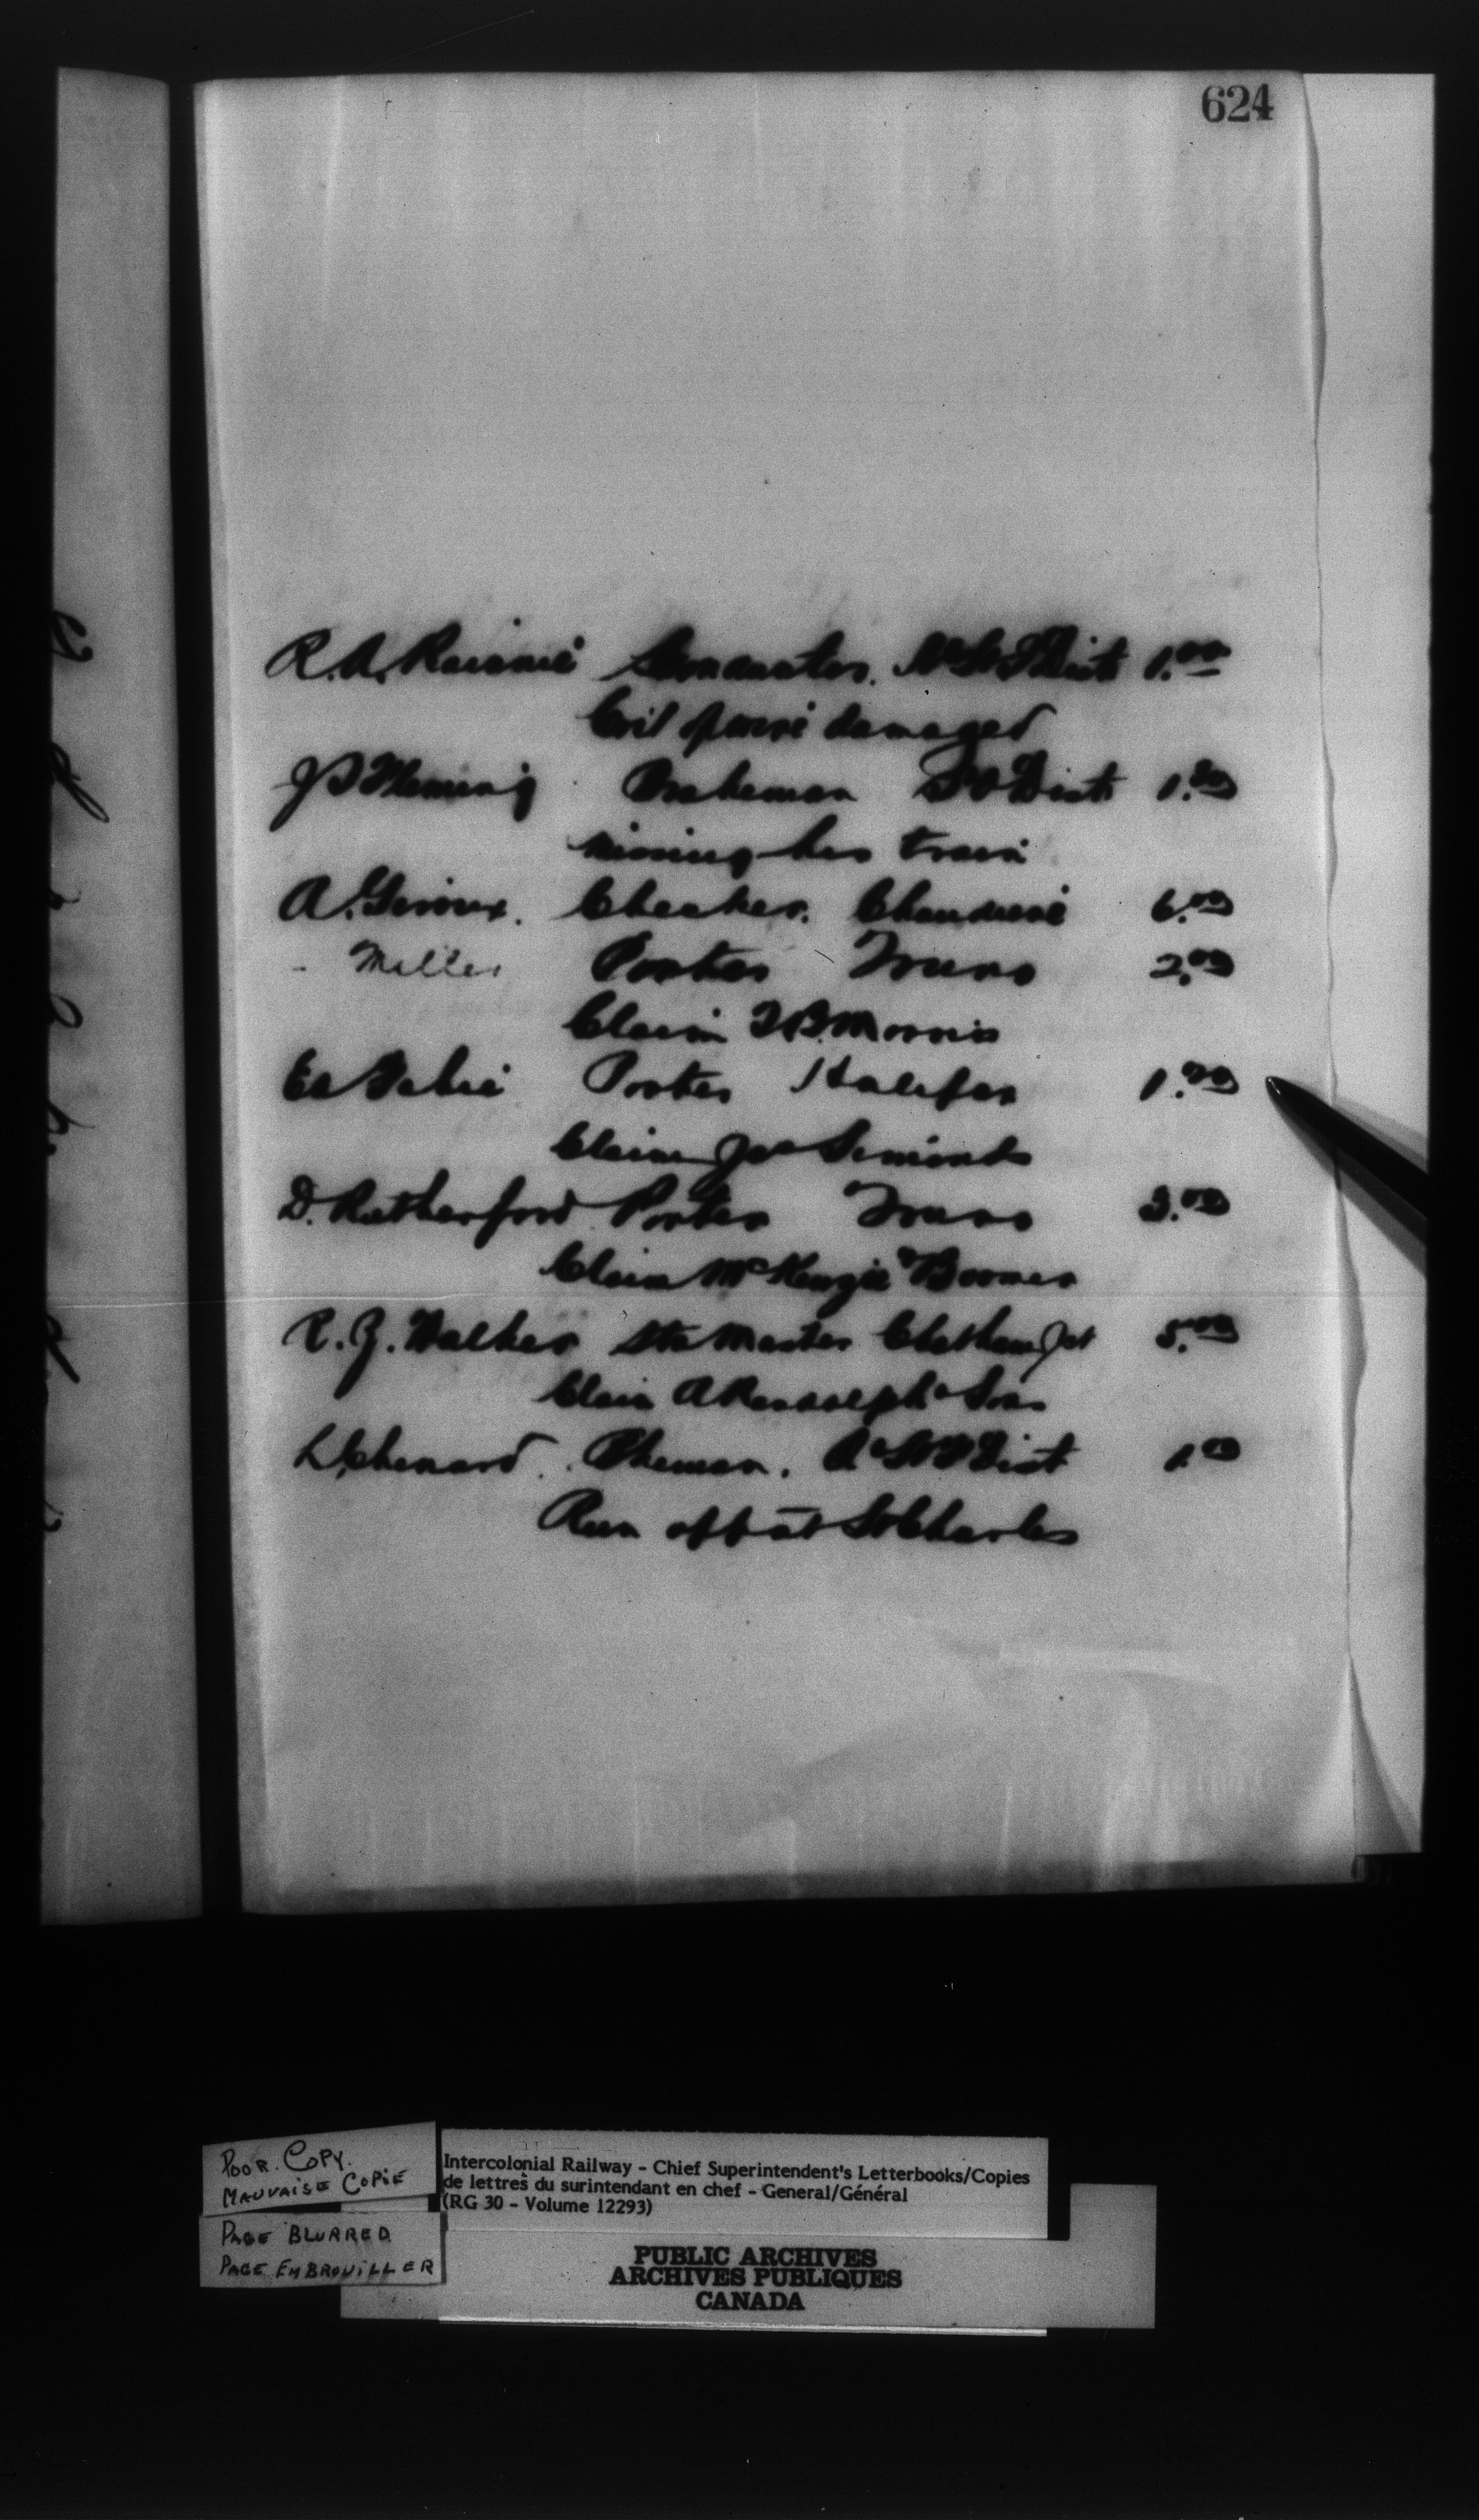 624
R. A. Conductor. Dist 1.00
Coil damaged
J P Fleming Brakeman Dist 1.50
missing his train
A. Giroux. Checker. Chaudière 6.00
- Miller Porter Truro 2.00
Claim Morris
Porter Halifax 1.00
Claim Jas Simonds
D. Rutherford Porter Truro 2.00
Claim McKenzie
R. J. Walker Sta Master Chatham Jct 5.00
Claim A Randolph & Sons
L. Chenard. Dist 1.00
Run off at St Charles
POOR. COPY.
MAUVAISE COPIE
PAGE BLURRED
PAGE EMBROUILLER
Intercolonial Railway - Chief Superintendent's Letterbooks/Copies
de lettres du surintendant en chef - General/Général
(RG 30 - Volume 12293)
PUBLIC ARCHIVES
ARCHIVES PUBLIQUES
CANADA